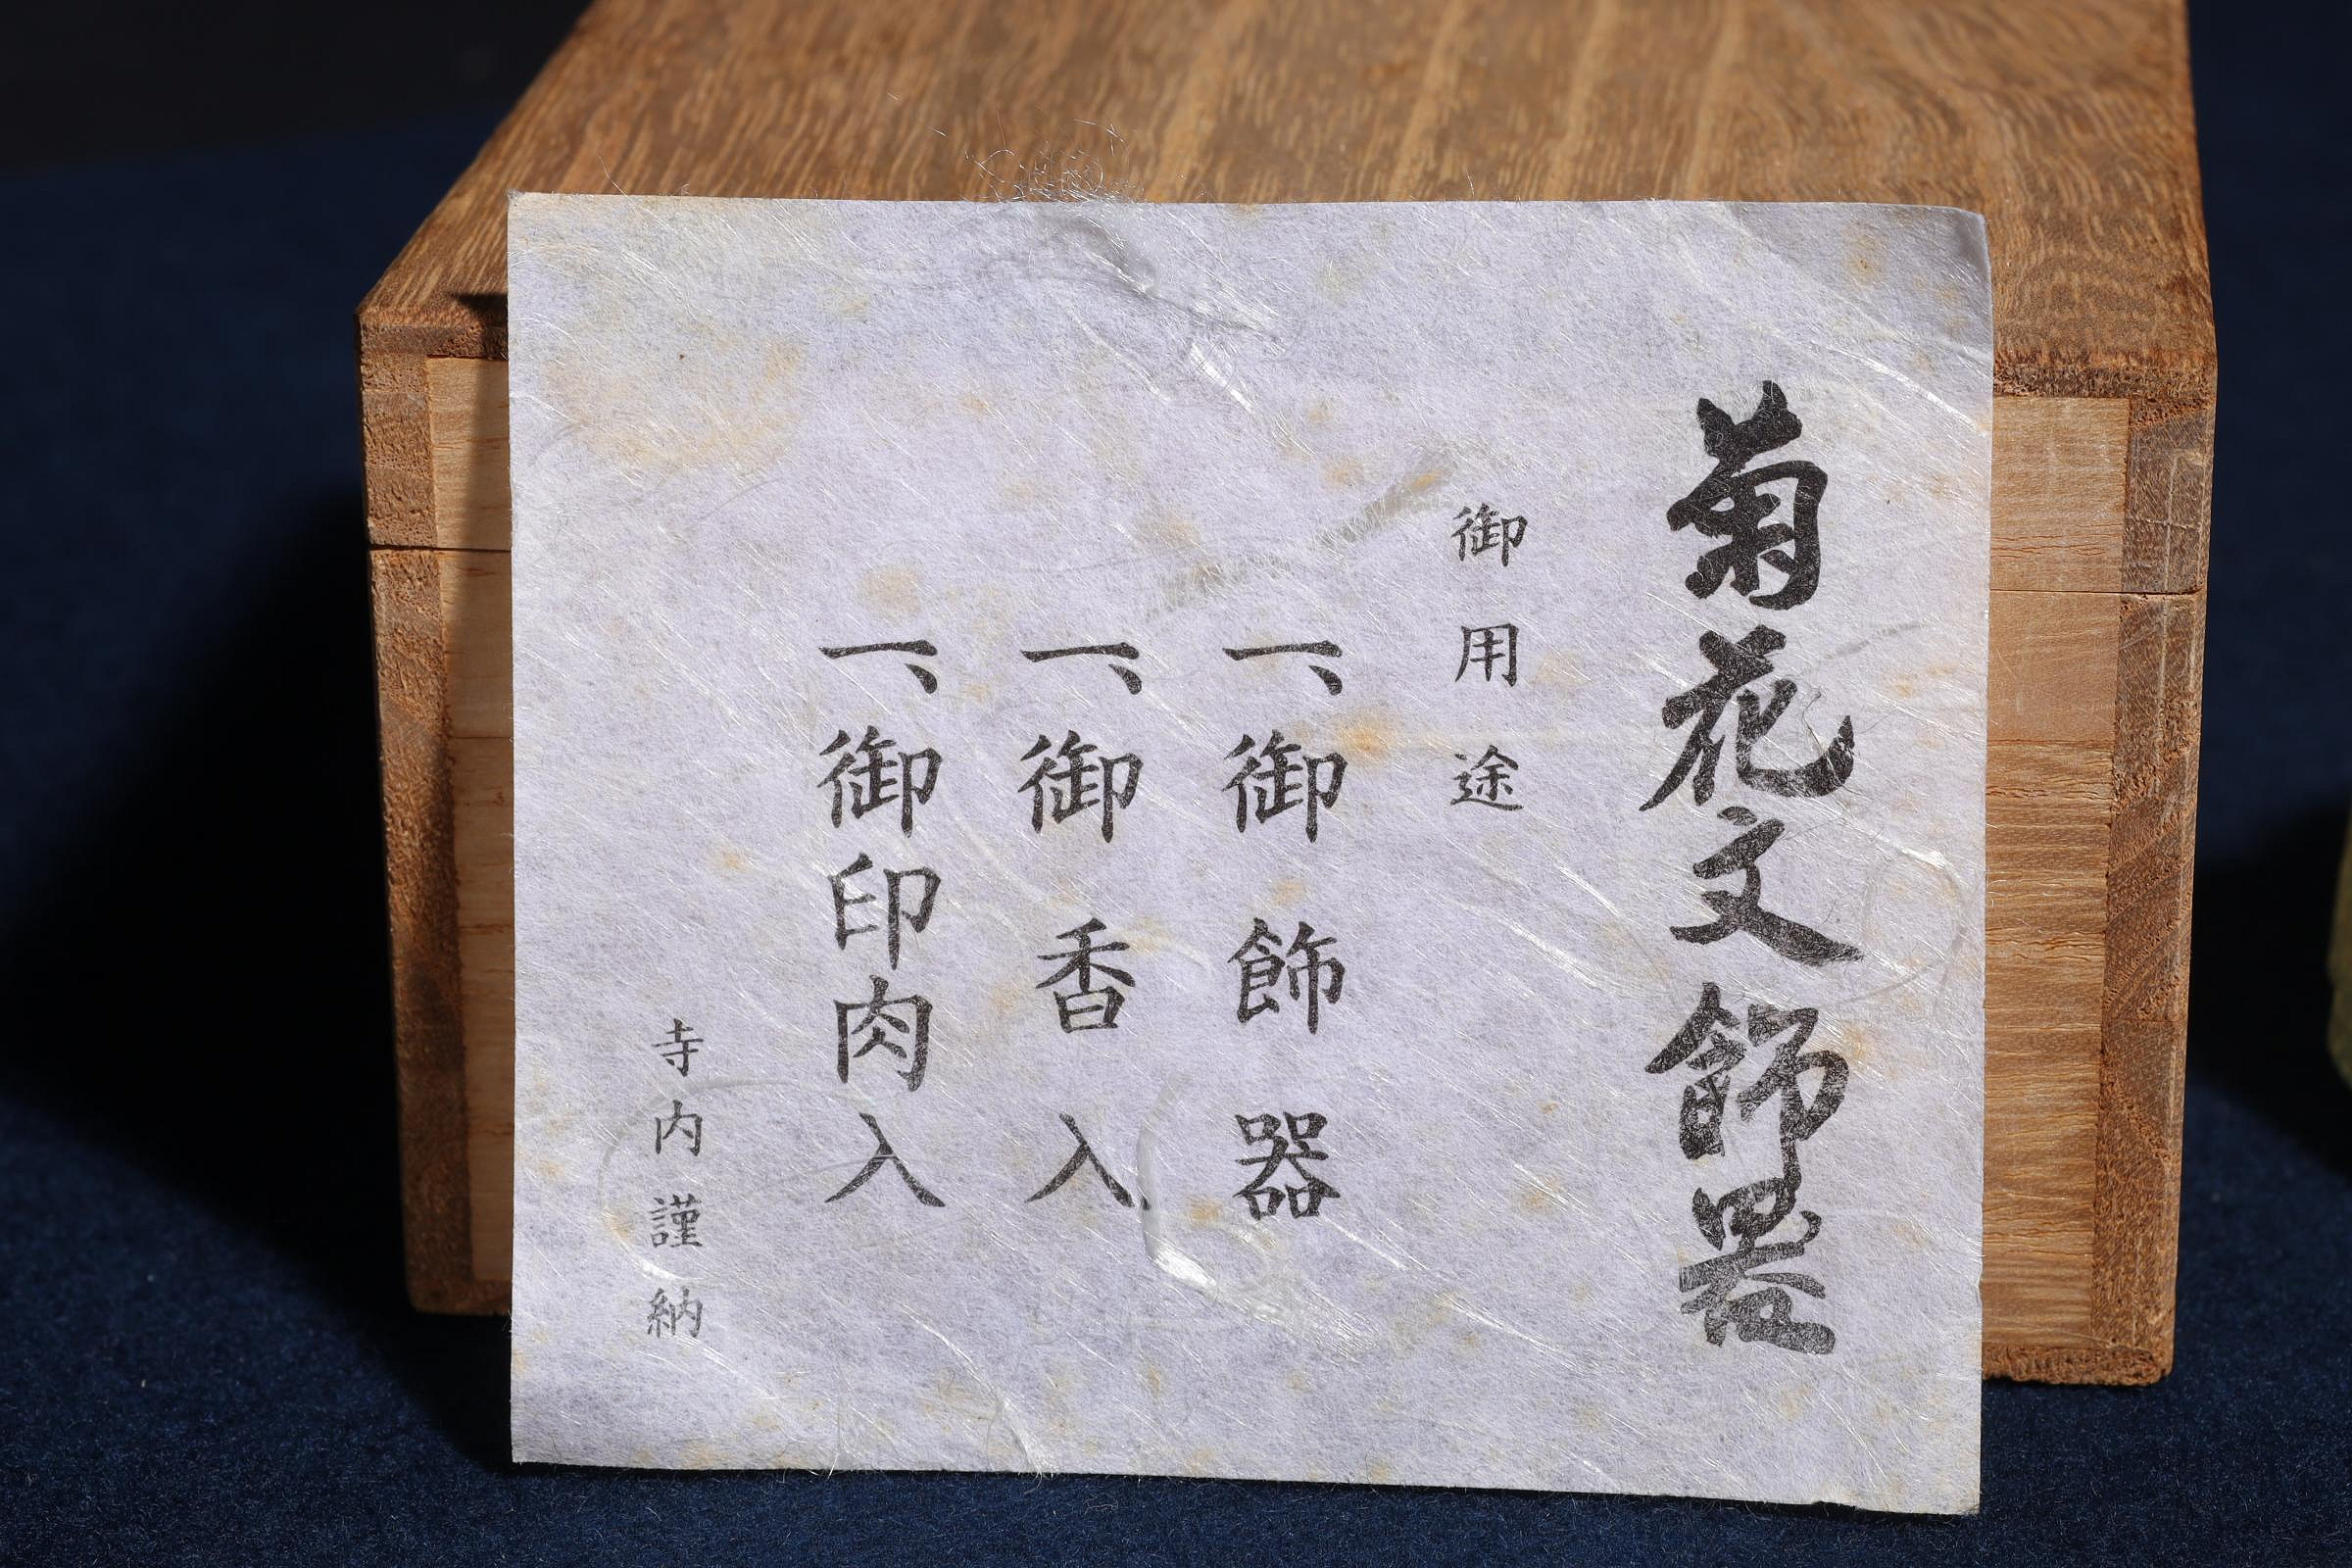 菊花文飾器
御用途
一、御飾器
一、御香入
一、御印肉入
寺内謹納